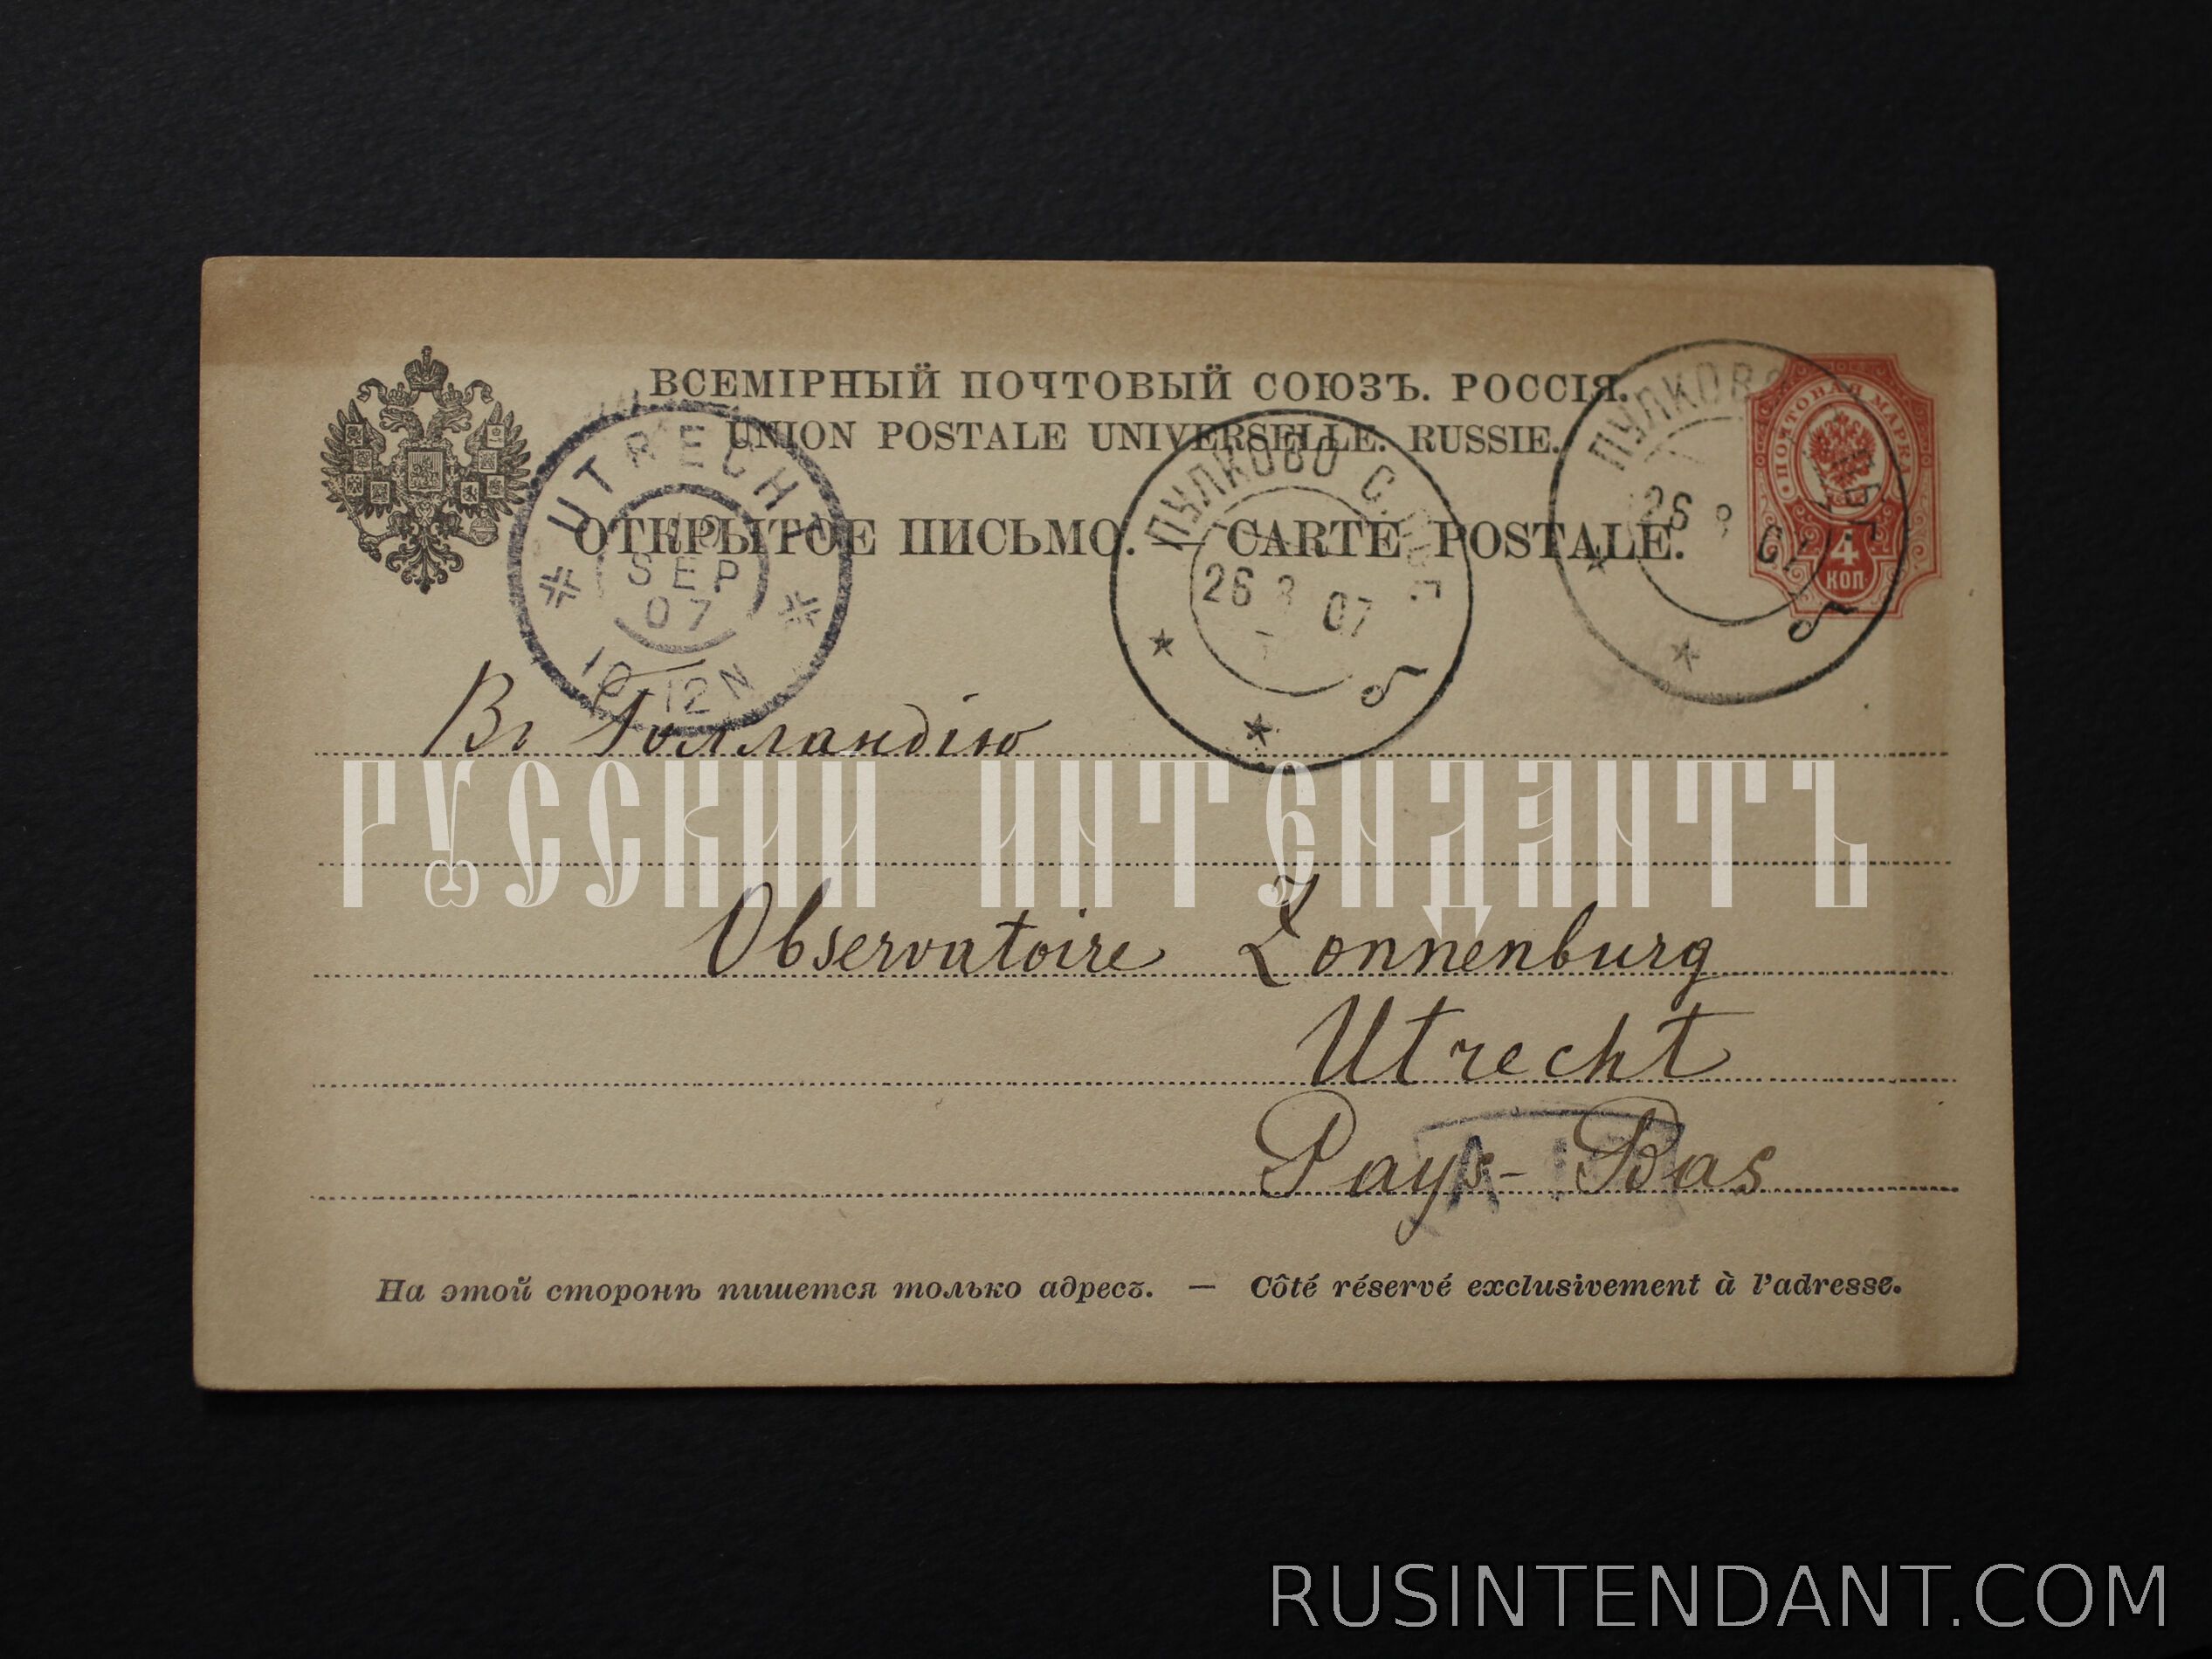 ВСЕМІРНЫЙ ПОЧТОВЫЙ СОЮЗЪ. РОССІЯ.
UNION POSTALE UNIVERSELLE. RUSSIE.
ОТКРЫТОЕ ПИСЬМО. — CARTE POSTALE.
ПОЧТОВАЯ МАРКА
4
КОП.
UTRECHT
SEP
07
10-12N
ПУЛКОВО С.
26 8 07
б
ПУЛКОВО
26 8 07
б
Въ Голландію
РУССКИЙ ИНТЕНДАНТЪ
Observatoire Zonnenburg
Utrecht
Pays-Bas
На этой сторонѣ пишется только адресъ. — Côté réservé exclusivement à l'adresse.
RUSINTENDANT.COM